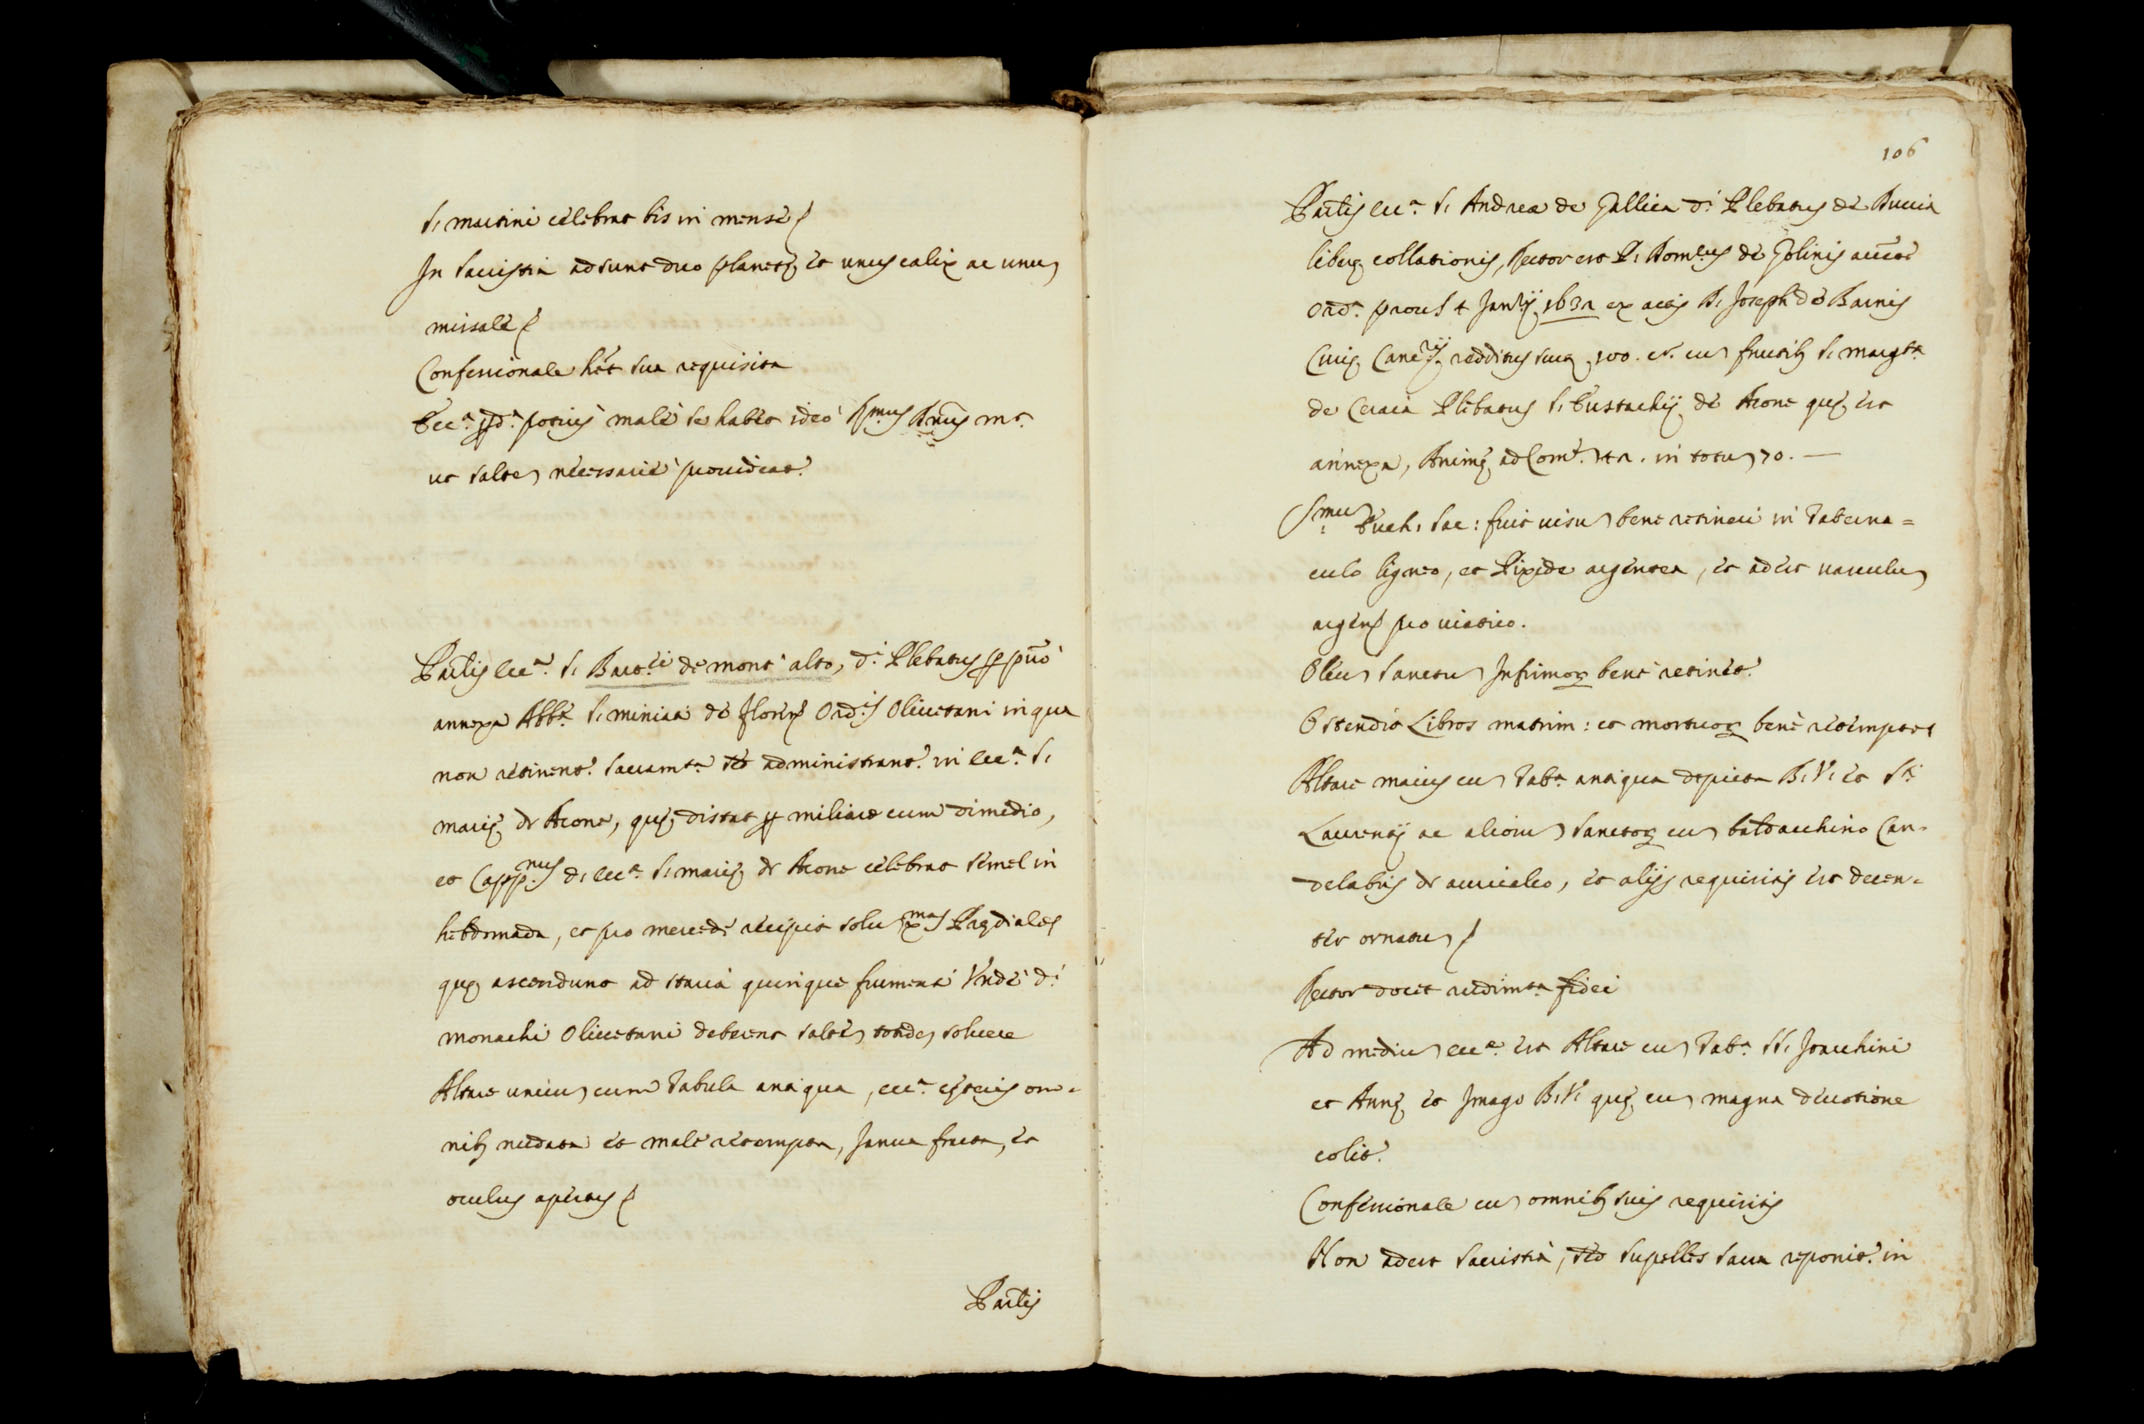 S. Martini celebrat bis in mense
In Sacristia adsunt duo planetę et unus calix ac unu
missale
Confessionale h̃et sua requisita
Ecc.ª p̃d.ª potius male se habet ideo R.mus Rnus m.t
ut salte necessarie provideat.
Parlis ecc.ª S. Bart.ei de mont'alto, d.i Plebatus
annexa Abb.ę S. Miniati de Floren. Ord.is Olivetani in qua
non retinent. Sacram.ta sed administrant. in ecc.ª S.
Marię de Acone, quę distat p miliare cum dimedio,
et Capp.nus d. ecc.ª S. Marię de Acone celebrat semel in
hebdomada, et pro mercede recipit solu x.mas Prędiales
quę ascendunt ad staria quinque frumenti Unde d.i
monachi Olivetani deberent salte solvere
Altare unicu cum tabula antiqua, ecc.ª cęteris om=
nib; nudata et male retempta, Janua fracta, et
oculus apertus
Parlis
106
Parlis ecc.ª S. Andreę de Gallica d.i Plebatus de
liberę collationis, Rector est P. Rom.lus de Golinis auct.e
Ord.ª prout 4 Jan.rij 1632 ex actis R. Joseph de Barnis
Curię Canc.rij redditus suę 100. cu fructib; S. Marg.tę
de Ceraia Plebatus S. Eustachij de Acone quę est
annexa, Animę ad Com. 42. in totu 70. —
S.mu Euch. Sac: fuit visu bene retineri in Taberna=
culo ligneo, et Pixide argentea, et adest vasculu
argen. pro viatico.
Oleu Sanctu Infirmor bene retinet.
Ostendit Libros matrim: et mortuor bene retemptos
Altare maius cu Tab.ª antiqua depicta B. V. et S.ti
Laurentij ac aliorum Sanctor cu baldacchino Can=
delabris de auricalco, et alijs requisitis est decen=
ter ornatu
Rector docet rudim.ta fidei
Ad mediu ecc.ę est Altare cu Tab.ª SS. Joacchini
et Annę et Imago B. V. quę cu magna devotione
colit.
Confessionale cu omnib; suis requisitis
Non adest Sacristia, sed supellex sacra reponit. in